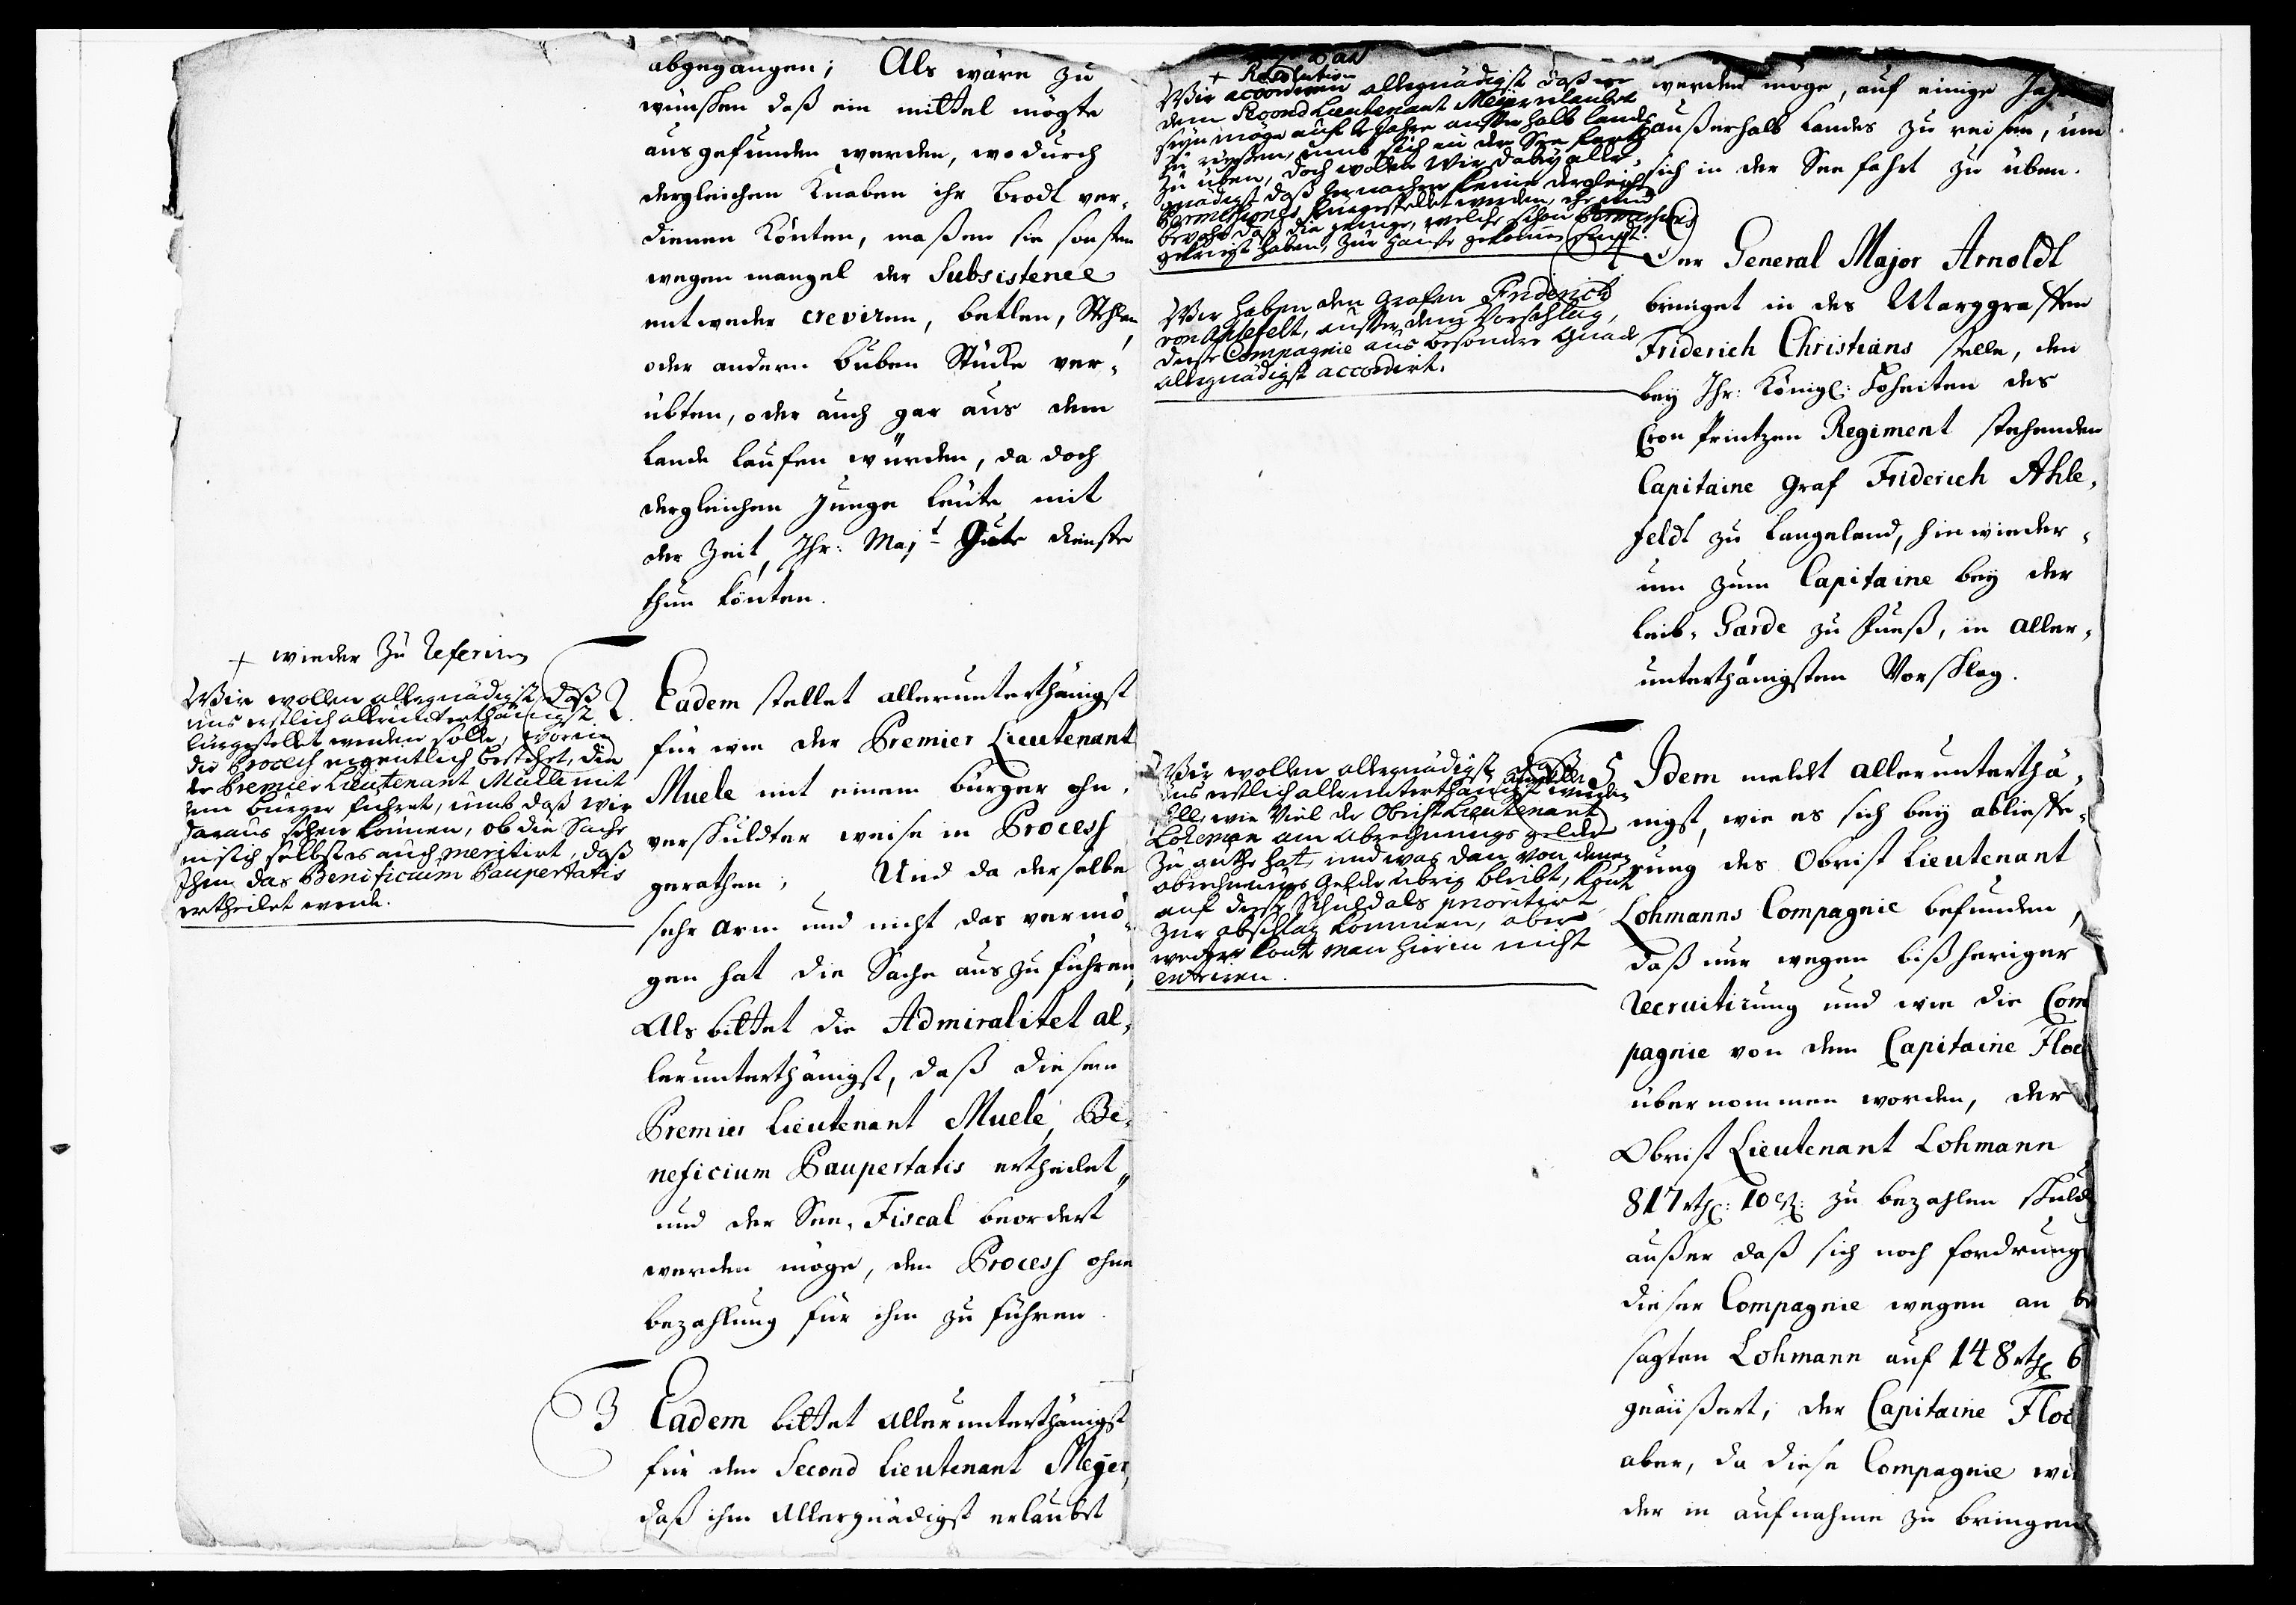 abgegangen; Als wäre zu
wünschen daß ein mittel mögte
ausgefunden werden, wodurch
dergleichen Knaben ihr Brodt ver-
dienen könten, maßen sie sonsten
wegen mangel der Subsistence
entweder creviren, betlen, Stehlen,
oder andere Buben Stücke ver-
übten, oder auch gar aus dem
Lande lauffen würden, da doch
dergleichen Junge Leute mit
der Zeit, Ihr: Majt Gute dienste
thun könten.
+ wieder zu referiren
Wir wollen allergnädigst, daß
uns erstlich allerunterthänigst
fürgestellet werden solle, worin
die Process eigentlich bestehet, die
der Premier Lieutenant Mülle mit
ein bürger führet, umb daß wir
daraus sehen können, ob die Sache
an sich selbst es auch meritirt, daß
Ihm das Beneficium Paupertatis
ertheilet werde.
2. Eadem stellet allerunterthänigst
für wie der Premier Lieutenant
Muele mit einem bürger ohn-
verschuldter weise in Process
gerathen; Und da derselbe
sehr arm und nicht das vermö-
gen hat die Sache auszuführen,
Als bittet die Admiralitet al-
lerunterthänigst, daß diesem
Premier Lieutenant Muele, Be-
neficium Paupertatis ertheilet,
und der See-Fiscal beordert
werden möge, den Process ohne
bezahlung für ihm zu führen.
3 Eadem bittet allerunterthänigst
für den Second Lieutenant Meyer,
daß ihm allergnädigst erlaubet
+ Resolution
Wir accordiren allergnädigst daß
dem Second Lieutenant Meyer erlaubet
seyn möge auf Jahre außerhalb Lands
zu reysen, umb sich in der See farth
zu üben, doch wollen Wir dabey aller-
gnädigst daß hernacher keine dergleichen
Permissions fürgestellet werden, ehe und
bevohr daß die jenige, welche schon Permission
gekriegt haben, zur Hause gekommen seynd.
Wir haben den Grafen Friderich
von Ahlefelt, außer dem Vorschlag,
diese Compagnie aus besondere Gnade
allergnädigst accordirt.
Wir wollen allergnädigst, daß
uns erstlich allerunterthänigst werden
solle, wie Viel der Obrist Lieutenant
Loheman am Abrechnungs gelder
zu guthe hat, und was dan von denen
abrechnungs Gelder übrig bleibt, kont
auf diese Schuld als prioritirt
zur abschlag kommen, aber
weiter kont man hierin nicht
entriren.
werden möge, auf einige Jahr
außerhalb Landes zu reisen, um
sich in der See fahrt zu üben.
Der General Major Arnoldt
bringet in des Marggraffen
Friderich Christians stelle, den
bey Ihr: Königl: Hoheiten des
Cron Printzen Regiment stehenden
Capitaine Graf Friderich Ahle-
feldt zu Langeland, hinwieder-
um zum Capitaine bey der
Leib-Garde zu Fueß, in aller-
unterthänigsten Vorschlag.
5 Idem meldt allerunterthä-
nigst, wie es sich bey abliefe-
rung des Obrist Lieutenant
Lohmanns Compagnie befunden,
daß nur wegen bißheriger
recruitirung und wie die Com
pagnie von dem Capitaine Floc
übernommen worden, der
Obrist Lieutenant Lohmann
817 rthl: 10 ß: zu bezahlen schuld
außer daß sich noch fordrung
dieser Compagnie wegen an be
sagten Lohmann auf 148 rthl 6
geäüßert; der Capitaine Floc
aber, da diese Compagnie wi
der in aufnahme zu bringen